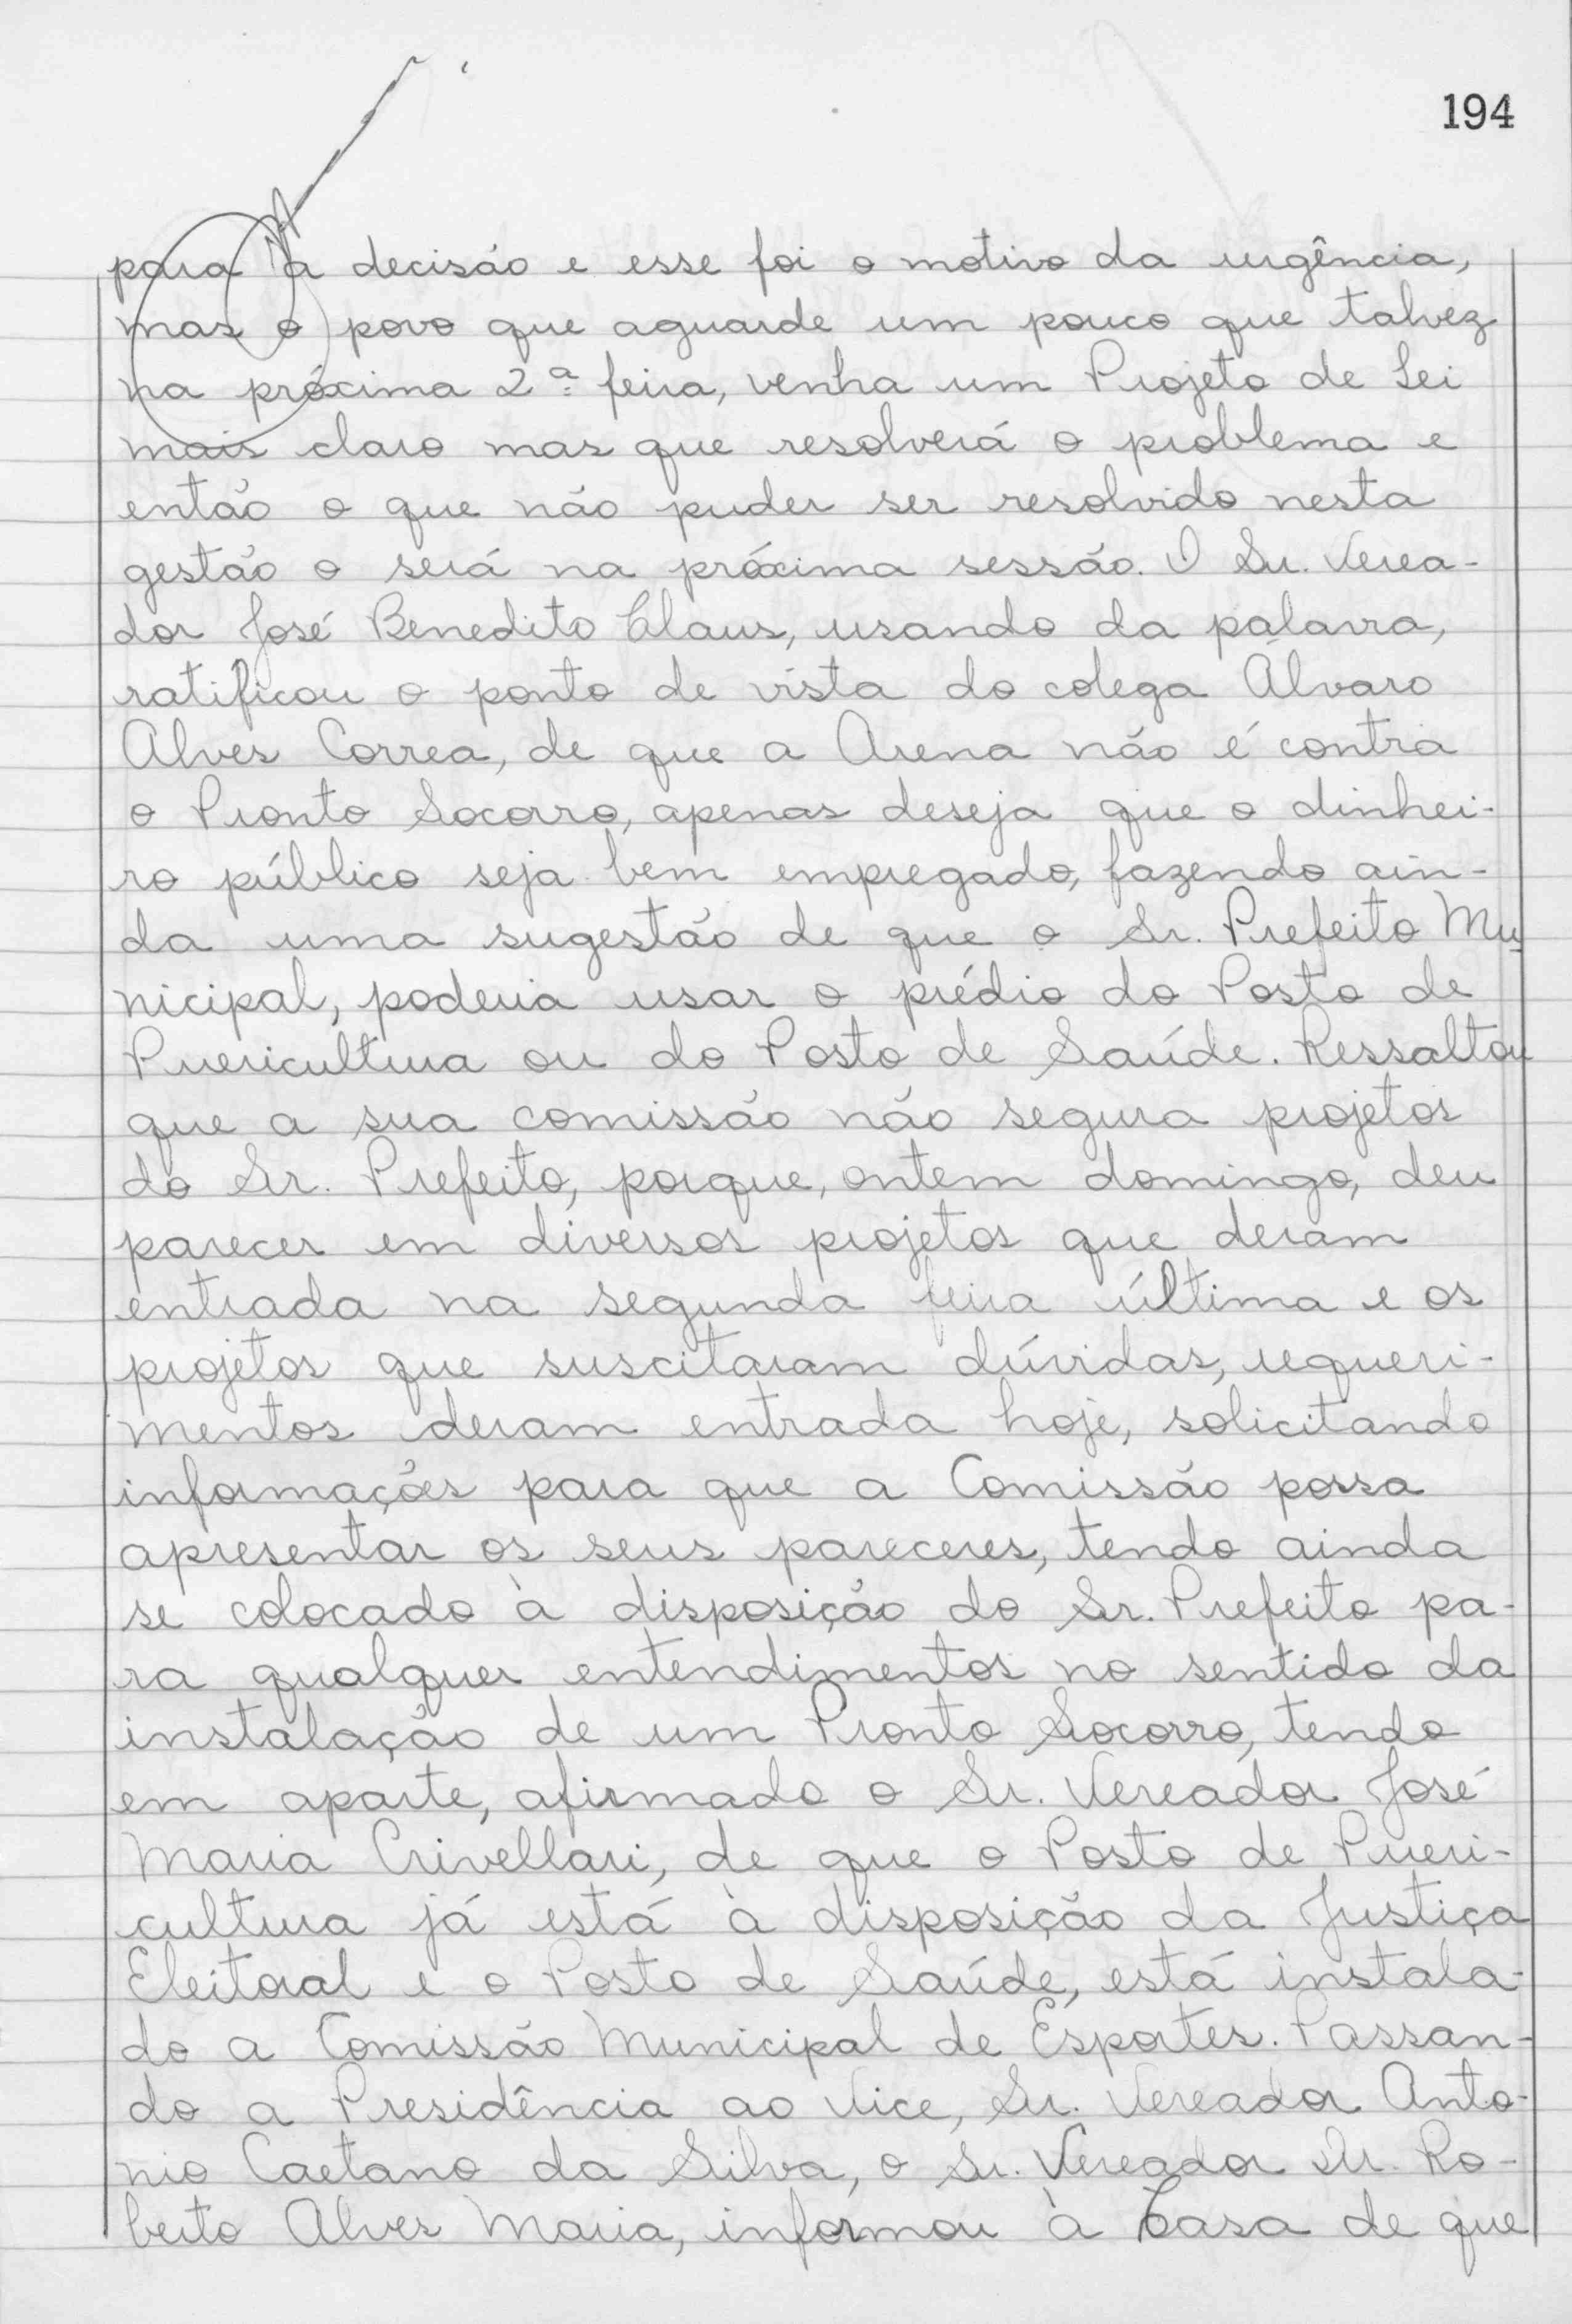 194
para a decisão e esse foi o motivo da urgência,
mas o povo que aguarde um pouco que talvez
na próxima 2ª feira, venha um Projeto de Lei
mais claro mas que resolverá o problema e
então o que não puder ser resolvido nesta
gestão o será na próxima sessão. O Sr. Verea-
dor José Benedito Claus, usando da palavra,
ratificou o ponto de vista do colega Álvaro
Alves Correa, de que a Arena não é contra
o Pronto Socorro, apenas deseja que o dinhei-
ro público seja bem empregado, fazendo ain-
da uma sugestão de que o Sr. Prefeito Mu
nicipal, poderia usar o prédio do Posto de
Puericultura ou do Posto de Saúde. Ressaltou
que a sua comissão não segura projetos
do Sr. Prefeito, porque, ontem domingo, deu
parecer em diversos projetos que deram
entrada na segunda feira última e os
projetos que suscitaram dúvidas, requeri-
mentos deram entrada hoje, solicitando
informações para que a Comissão possa
apresentar os seus pareceres, tendo ainda
se colocado à disposição do Sr. Prefeito pa-
ra qualquer entendimentos no sentido da
instalação de um Pronto Socorro, tendo
em aparte, afirmado o Sr. Vereador José
Maria Crivellari, de que o Posto de Pueri-
cultura já está à disposição da Justiça
Eleitoral e o Posto de Saúde, está instala-
do a Comissão Municipal de Esportes. Passan-
do a Presidência ao Vice, Sr. Vereador Anto-
nio Caetano da Silva, o Sr. Vereador Dr. Ro-
berto Alves Maria, informou à Casa de que